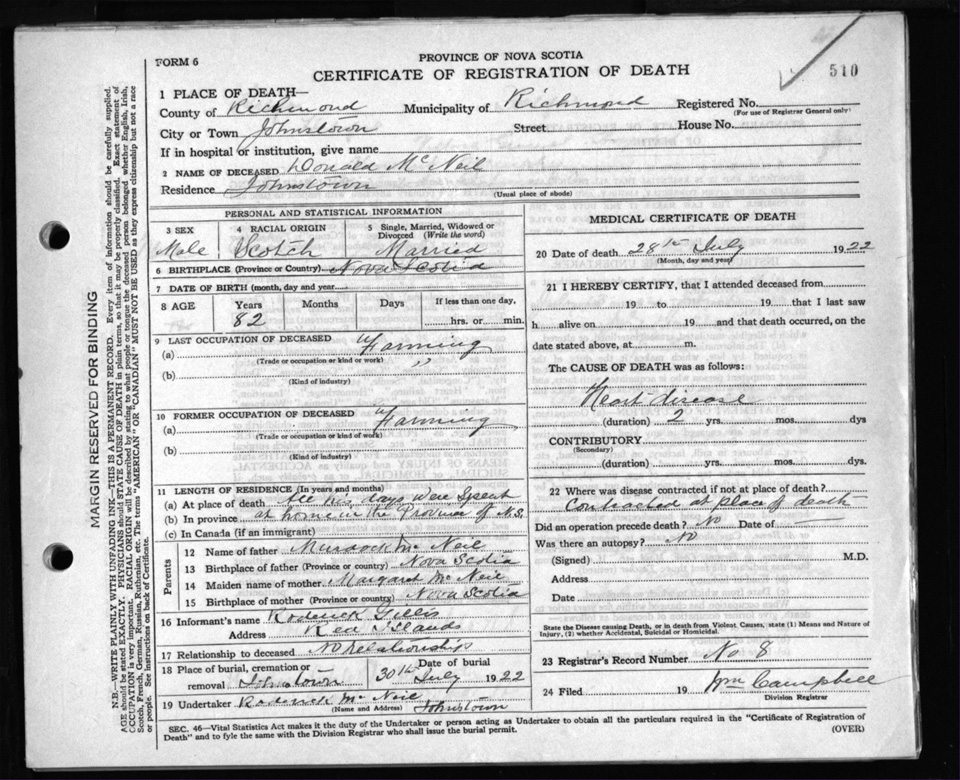 FORM 6
PROVINCE OF NOVA SCOTIA
CERTIFICATE OF REGISTRATION OF DEATH
510
1 PLACE OF DEATH—
County of Richmond Municipality of Richmond Registered No.
(For use of Registrar General only)
City or Town Johnstown Street House No.
If in hospital or institution, give name
2 NAME OF DECEASED Donald McNeil
Residence Johnstown
(Usual place of abode)
PERSONAL AND STATISTICAL INFORMATION
3 SEX 4 RACIAL ORIGIN 5 Single, Married, Widowed or
Divorced (Write the word)
Male Scotch Married
6 BIRTHPLACE (Province or Country) Nova Scotia
7 DATE OF BIRTH (month, day and year)
8 AGE Years Months Days If less than one day,
82 hrs. or min.
9 LAST OCCUPATION OF DECEASED
(a) Farming
(Trade or occupation or kind or work)
(b) "
(Kind of industry)
10 FORMER OCCUPATION OF DECEASED
(a) Farming
(Trade or occupation or kind of work)
(b)
(Kind of industry)
11 LENGTH OF RESIDENCE (In years and months)
(a) At place of death All his days were spent
(b) In province at home in the Province of N.S.
(c) In Canada (if an immigrant)
Parents
12 Name of father Murdock McNeil
13 Birthplace of father (Province or country) Nova Scotia
14 Maiden name of mother Margaret McNeil
15 Birthplace of mother (Province or country) Nova Scotia
16 Informant's name Roderick Gillis
Address Red Islands
17 Relationship to deceased No relationship
18 Place of burial, cremation or Date of burial
removal Johnstown 30th July 1922
19 Undertaker Roderick McNeil Johnstown
(Name and Address)
MEDICAL CERTIFICATE OF DEATH
20 Date of death 28th July 1922
(Month, day and year)
21 I HEREBY CERTIFY, that I attended deceased from
19 to 19 that I last saw
h alive on 19 and that death occurred, on the
date stated above, at m.
The CAUSE OF DEATH was as follows:
Heart disease
(duration) 2 yrs. mos. dys
CONTRIBUTORY
(Secondary)
(duration) yrs. mos. dys.
22 Where was disease contracted if not at place of death?
Contracted at place of death
Did an operation precede death? No Date of —
Was there an autopsy? No
(Signed) M.D.
Address
Date
State the Disease causing Death, or in death from Violent Causes, state (1) Means and Nature of
Injury, (2) whether Accidental, Suicidal or Homicidal.
23 Registrar's Record Number No 8
24 Filed 19 Wm Campbell
Division Registrar
SEC. 46—Vital Statistics Act makes it the duty of the Undertaker or person acting as Undertaker to obtain all the particulars required in the "Certificate of Registration of
Death" and to fyle the same with the Division Registrar who shall issue the burial permit.
(OVER)
MARGIN RESERVED FOR BINDING
N.B.—WRITE PLAINLY WITH UNFADING INK—THIS IS A PERMANENT RECORD. Every item of information should be carefully supplied.
AGE should be stated EXACTLY. PHYSICIANS should STATE CAUSE OF DEATH in plain terms, so that it may be properly classified. Exact statement of
OCCUPATION is very important. RACIAL ORIGIN will be described by stating to what people or tongue the deceased person belonged whether English, Irish,
Scotch, French, German, Russian, Ruthenian, etc. The terms "AMERICAN" OR "CANADIAN" MUST NOT BE USED as they express citizenship but not a race
or people. See instructions on back of Certificate.